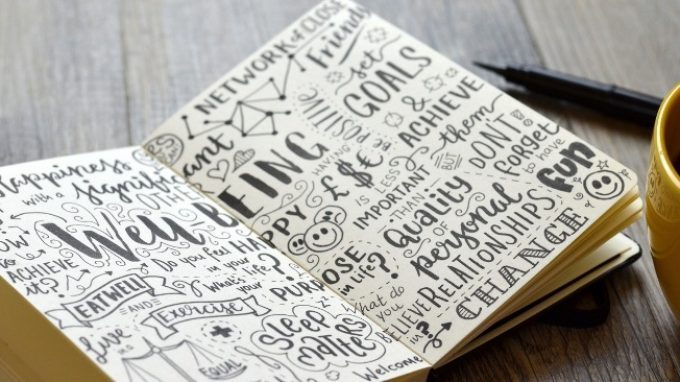 Happiness
with a significant
OTHER
Well BEING
HOW
to
ACHIEVE
it?
Do you feel
in your
What's your
life?
EAT WELL
AND
Exercise
Live
in
EQUAL
Sleep
MATTERS
Welcome
PURPOSE
in life?
NETWORK of CLOSE
Friend
Being
POSITIVE
set
GOALS
& ACHIEVE
them
HAVING
£$€
IS LESS
IMPORTANT
THAN
BUT
DON'T
forget
to have
fun
Quality
of personal
RELATIONSHIPS
What do
you
BELIEVE
in?
CHANGE